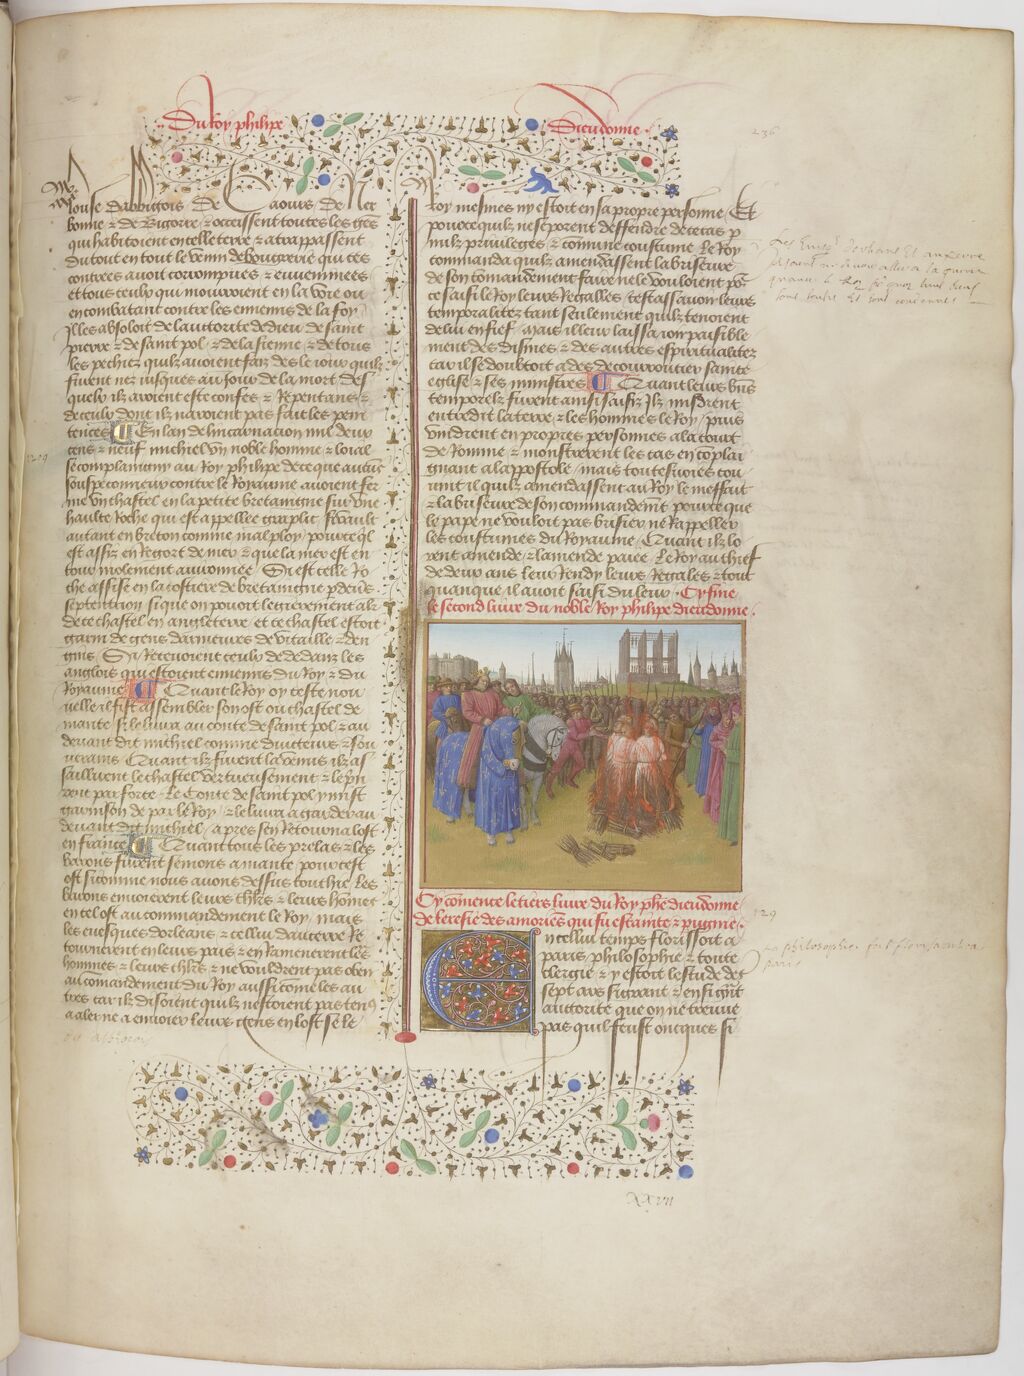 Du Roy phelipe
Dieudonne.
236
louse dalbigois De Caours de Ner
bonne & de Bigorre / & occeissent toutes les gẽs
qui habitoient en celle terre & atrappassent
du tout en tout le venin de bougrerie qui ces
contrees avoit corrompues & envenimees
et tous ceulx qui mourroient en la voie ou
en combatant contre les ennemis de la foy /
Illes absoloit de lautorite de dieu de saint
pierre & de saint pol / & de la sienne / & de tous
les pechiez quilz avoient faiz des le iour quilz
furent nez iusques au iour de la mort des
quelx ilz avroient este confes & Repentans &
de ceulx dont ilz navroient pas fait les peni
tences En lan de lincarnacion mil deux
1209
cens & neuf michiel vn noble homme & loial
se complaingny au Roy phelipe de ce que aucũs
souspeconneux contre le Royaume avoient fer
me vn chastel en la petite bretaingne sur vne
haulte Roche qui est appellee graplic / & vault
autant en breton comme mal ploy / pource ql
est assiz en Regort de mer & que la mer est en
tour molement avironnee Si est celle Ro
che assise en la costiere de bretaingne p deuѕ
septentrion si que on pouoit legierement alr
de ce chastel en angleterre et ce chastel estoit
garni de gens darmeures de vitaille & den
gins Si Recevoient ceulx de dedanz les
anglois qui estoient ennemis du Roy & du
Royaume Quant le Roy oy ceste nou
uelle il fist assembler son ost ou chastel de
mante si le livra au conte de saint pol & au
devant dit michiel comme duitteurs & sou
uerains Quant ilz furent la venus ilz as
saillirent le chastel vertueusement & le prin
rent par force Le Conte de saint pol y mist
garnison de par le Roy / & le livra a garder au
devant dit michiel / apres sen Retourna lost
en france Quant tous les prelas & les
barons furent semons a mante pour cest
ost si comme nous avons dessus touchie les
barons envoierent leurs chlrs & leurs hommes
en cel ost au commandement le Roy / mais
les euesques dorleans & cellui daucerre Re
tournerent en leurs pais & en Ramenerent les
hommes & leurs chlrs & ne vouldrent pas obeir
au comandement du Roy aussi come les au
tres car ilz disoient quilz nestoient pas tenus
a aler ne a envoier leurs gens en lost se le
Roy mesmes ny estoit en sa propre personne / Et
pource quilz ne se porent deffendre de ce cas p
nulz privileges & commune coustume le Roy
commanda quilz amendassent la briseure
de son comandement faire ne le vouloient po
ce saisi le Roy leurs Regalles / cest assavoir leurs
temporalitez tant seulement quilz tenoient
de lui en fief / mais il leur laissa ioir paisible
ment des dismes & des autres espiritualitez
car il se doubtoit ades de courroucier sainte
eglise & ses ministres Quant leurs biẽs
temporelz furent ainsi saisiz Ilz misdrent
entredit la terre & les hommes le Roy / puis
vindrent en propres personnes a la court
de Romme & monstrerent les cas en complai
gnant a lappostole / mais toutesvoies cou
uint il quilz amendassent au Roy le meffait
& la briseure de son commandemẽt pource que
le pape ne vouloit pas brisier ne Rappeller
les coustumes du Royaume Quant ilz lo
rent amende & lamende paiee Le Roy au chief
de deux ans leur Rendy leurs Regales & tout
quanque il avoit saisi du leur. Cy fine
le second livre du noble Roy phelipe dieudonne.
Cy comence le tiers livre du Roy phe dieudonne
de leresie des amoriẽs qui fu estainte & pugnie.
En cellui temps florissoit a
paris philosophie & toute
clergie & y estoit lestude des
sept ars si grant & en si grãt
autorite que on ne treuve
pas quil feust oncques si
Les Eves dorleans Et auxerre
129
La philosophie
paris
XXVII